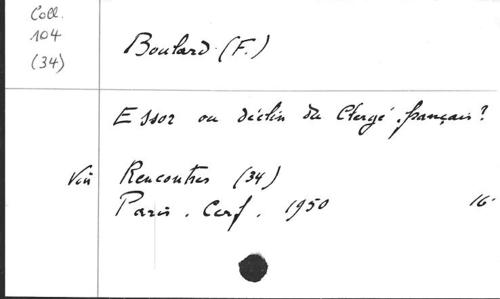 Coll.
104
(34)
Boulard (F.)
Essor ou déclin du Clergé français?
Voir Rencontres (34)
Paris. Cerf. 1950 16°